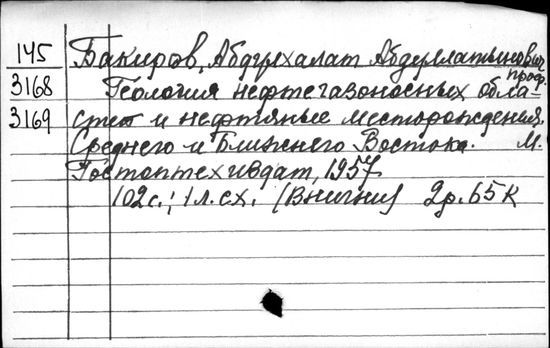 145 Бакиров, Абдурхалат Абдуллатыпович
проф.
3168 Геология нефтегазоносных обла-
3169 стей и нефтяные месторождения
Среднего и Ближнего Востока. М.
Гостоптехиздат, 1957
102 с.; 1 л. сх. (Внигни) 2р. 65 к